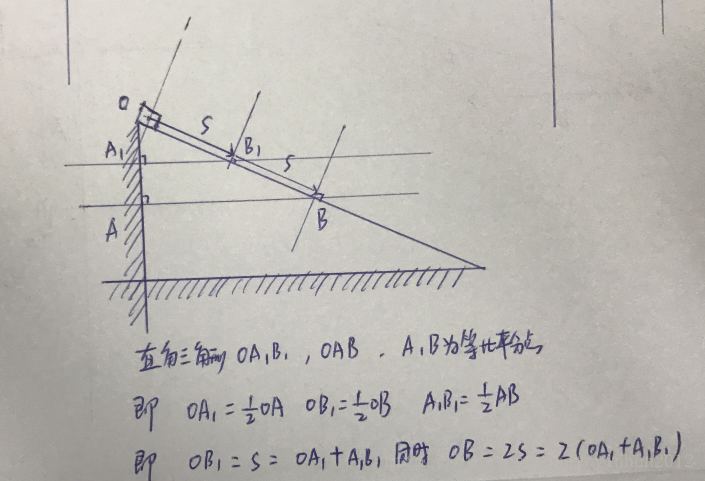 O
S
A₁
B₁
S
A
B
直角三角形 OA₁B₁ , OAB . A₁B为等比率分点
即 OA₁ = ½OA OB₁ = ½OB A₁B₁ = ½AB
即 OB₁ = S = OA₁ + A₁B₁ 同时 OB = 2S = 2(OA₁ + A₁B₁)